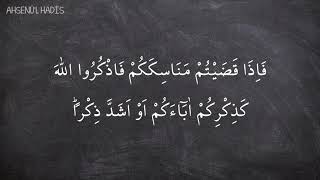 AHSENÜ'L HADİS
فَاِذَا قَضَيْتُمْ مَنَاسِكَكُمْ فَاذْكُرُوا اللّٰهَ
كَذِكْرِكُمْ اٰبَٓاءَكُمْ اَوْ اَشَدَّ ذِكْرًاۜ